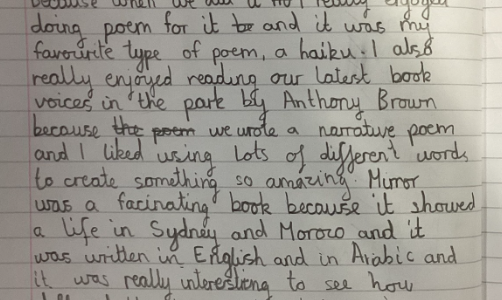 because when we did it no I really enjoyed
doing poem for it be and it was my
favourite type of poem, a haiku. I also
really enjoyed reading our latest book
voices in the park by Anthony Brown
because the poem we wrote a narrative poem
and I liked using lots of different words
to create something so amazing. Mirror
was a facinating book because it showed
a life in Sydney and Moroco and it
was written in English and in Arabic and
it was really interesting to see how